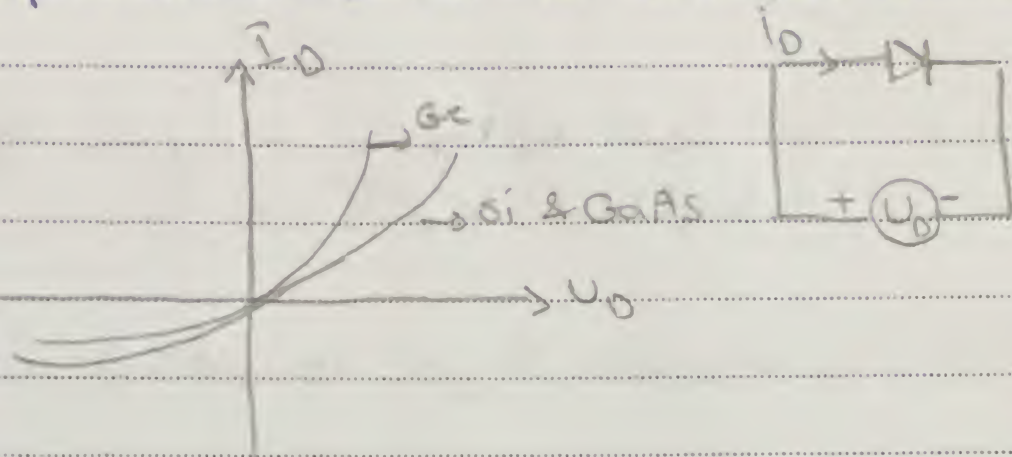 I_D
Ge
Si & GaAs
U_D
i_D
+ U_D -